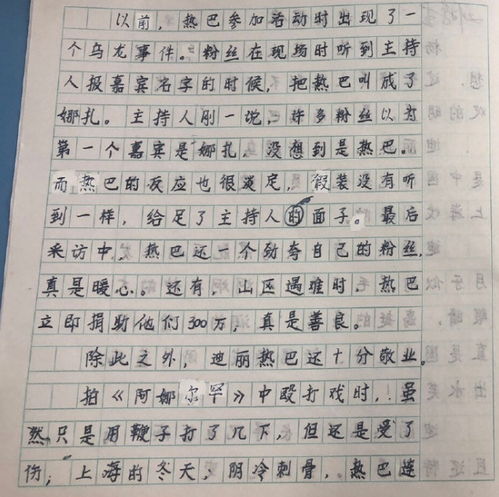 以前，热巴参加活动时出现了一
个乌龙事件。粉丝在现场时听到主持
人报嘉宾名字的时候，把热巴叫成了
娜扎。主持人刚一说，许多粉丝以为
第一个嘉宾是娜扎，没想到是热巴。
而热巴的反应也很淡定，假装没有听
到一样，给足了主持人的面子。最后
采访中，热巴还一个劲夸自己的粉丝，
真是暖心。还有，山区遇难时，热巴
立即捐助他们300万，真是善良。
除此之外，迪丽热巴还十分敬业。
拍《阿娜尔罕》中殴打戏时，虽
然只是用鞭子打了几下，但还是受了
伤；上海的冬天，阴冷刺骨，热巴连